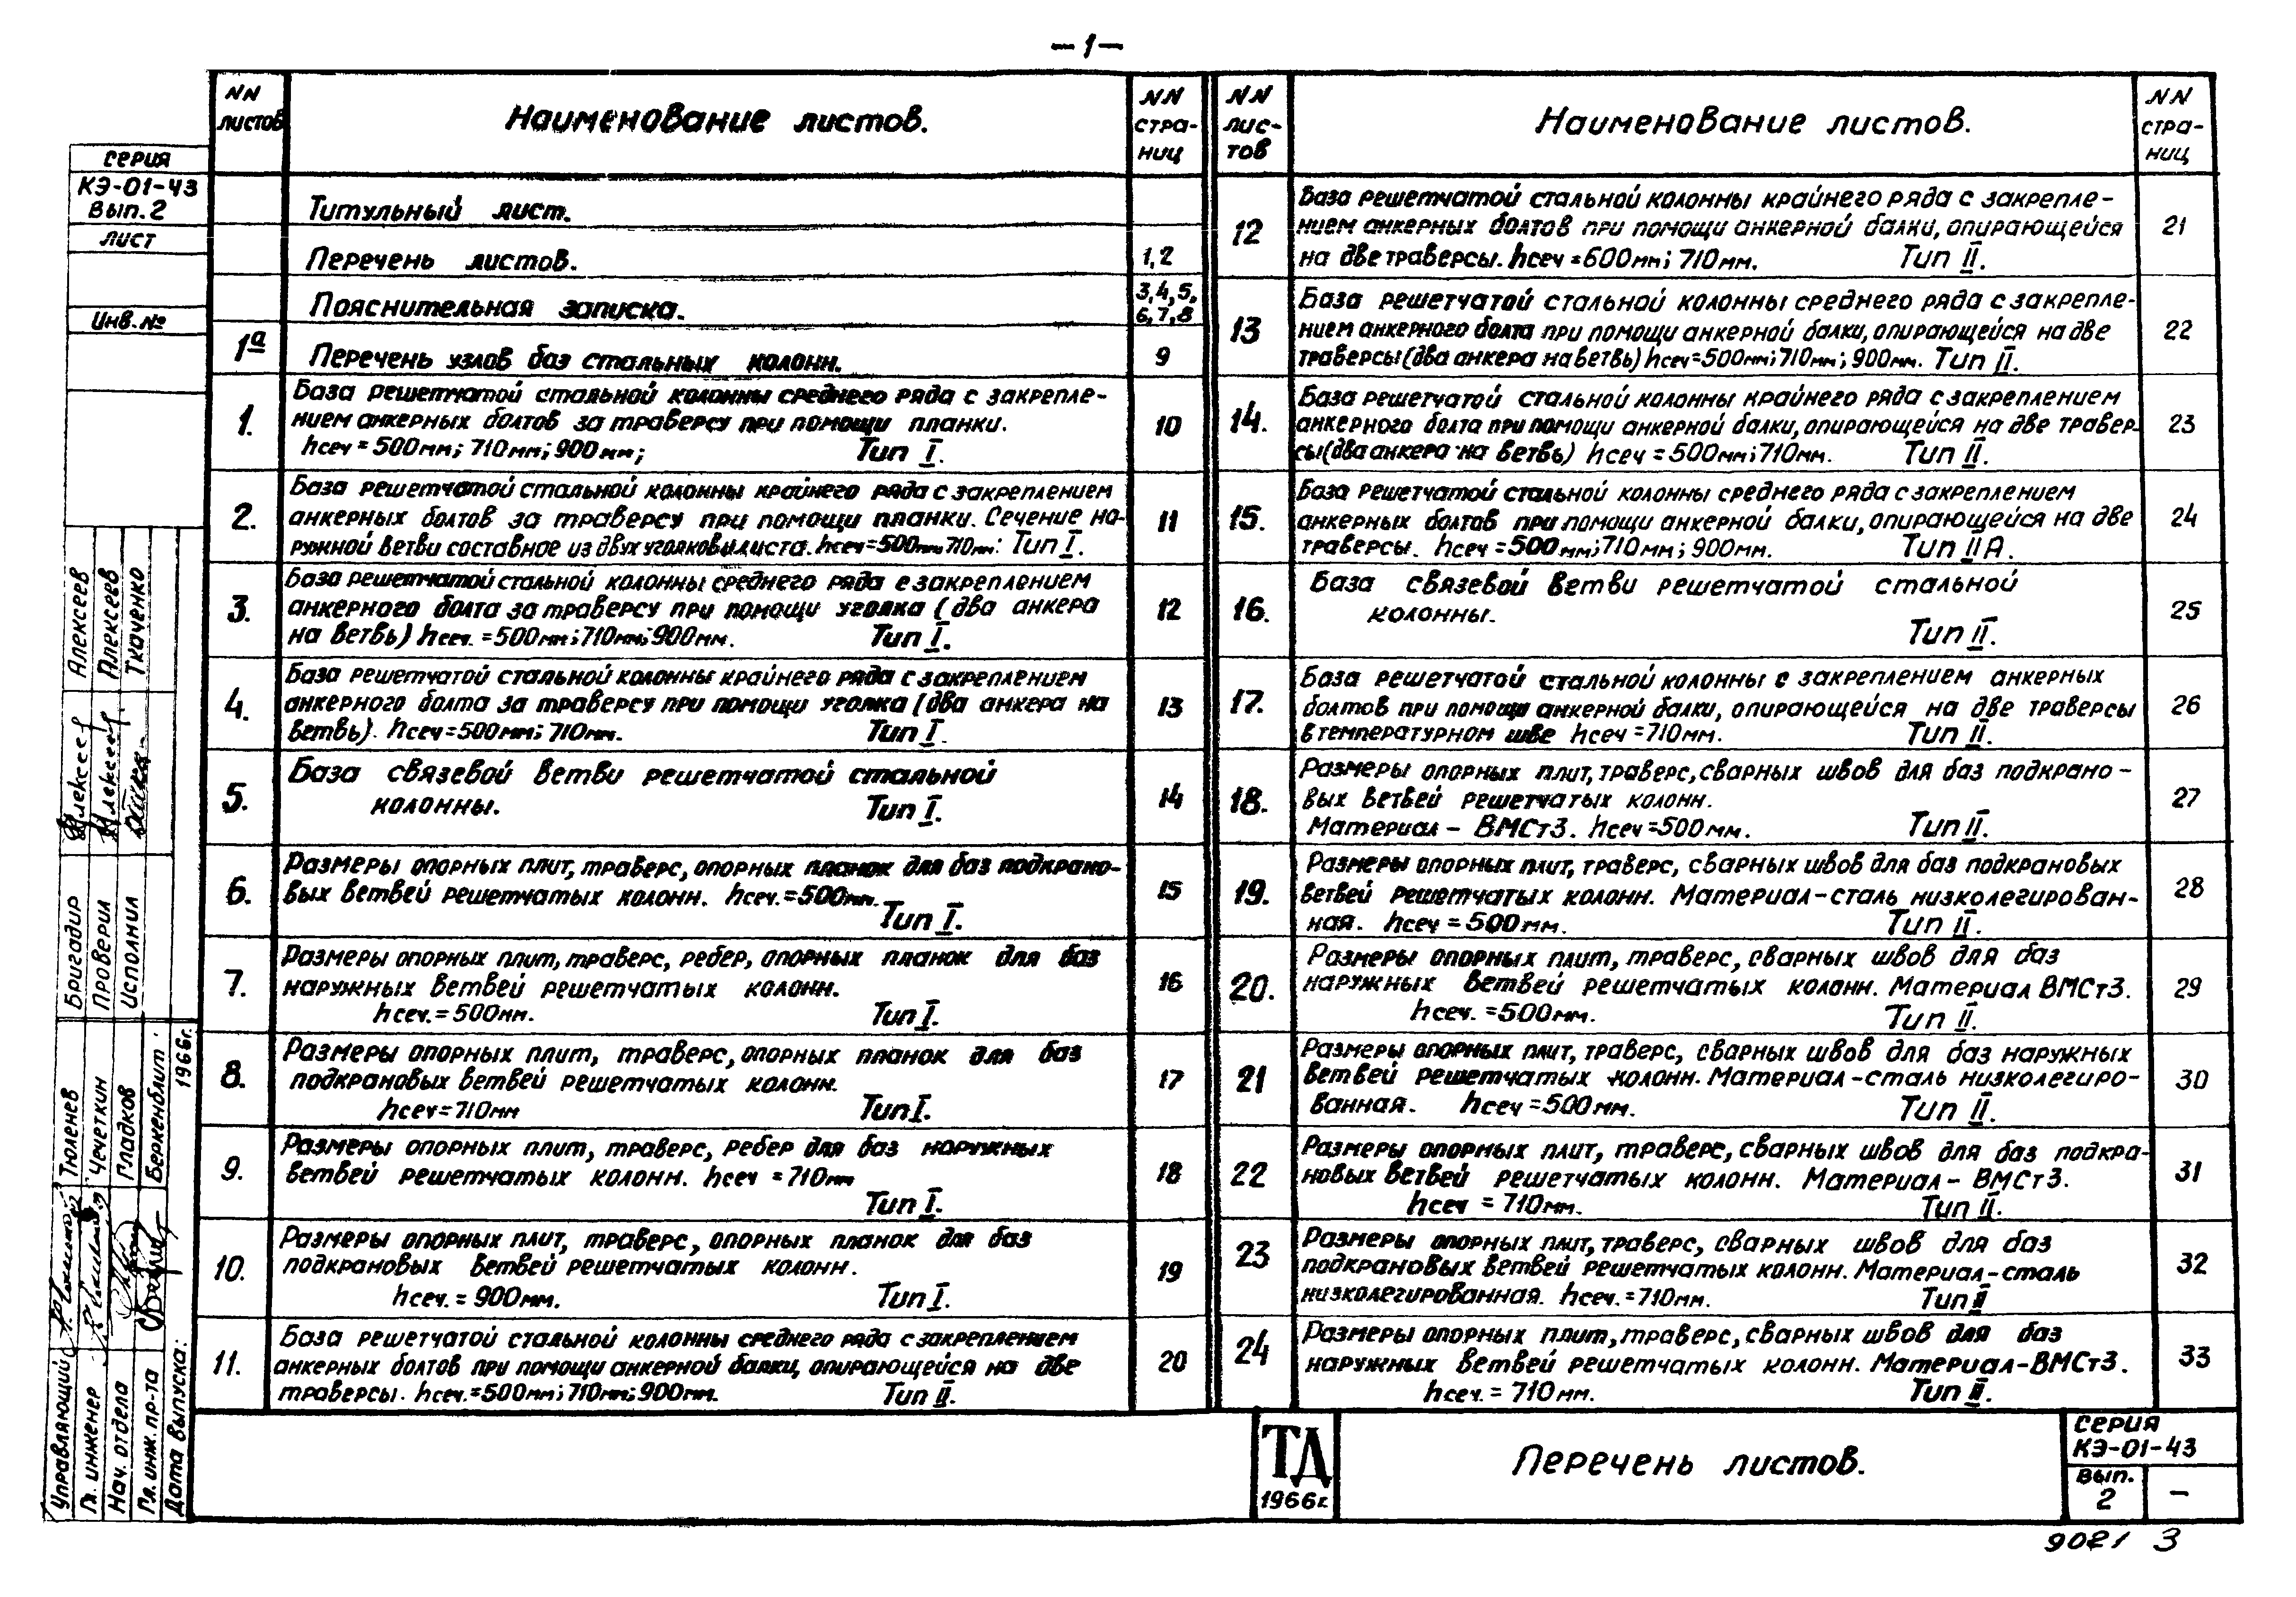 — 1 —
NN листов
Наименование листов.
NN страниц
Титульный лист.
Перечень листов.
1,2
Пояснительная записка.
3,4,5,
6,7,8
1а
Перечень узлов баз стальных колонн.
9
1.
База решетчатой стальной колонны среднего ряда с закрепле-
нием анкерных болтов за траверсу при помощи планки.
hсеч = 500мм; 710мм; 900мм; Тип I.
10
2.
База решетчатой стальной колонны крайнего ряда с закреплением
анкерных болтов за траверсу при помощи планки. Сечение на-
ружной ветви составное из двух уголков и листа. hсеч=500мм 710мм: Тип I.
11
3.
База решетчатой стальной колонны среднего ряда с закреплением
анкерного болта за траверсу при помощи уголка (два анкера
на ветвь) hсеч. =500мм; 710мм; 900мм. Тип I.
12
4.
База решетчатой стальной колонны крайнего ряда с закреплением
анкерного болта за траверсу при помощи уголка (два анкера на
ветвь). hсеч=500мм; 710мм. Тип I.
13
5.
База связевой ветви решетчатой стальной
колонны. Тип I.
14
6.
Размеры опорных плит, траверс, опорных планок для баз подкрано-
вых ветвей решетчатых колонн. hсеч.=500мм.
Тип I.
15
7.
Размеры опорных плит, траверс, ребер, опорных планок для баз
наружных ветвей решетчатых колонн.
hсеч.=500мм. Тип I.
16
8.
Размеры опорных плит, траверс, опорных планок для баз
подкрановых ветвей решетчатых колонн.
hсеч=710мм Тип I.
17
9.
Размеры опорных плит, траверс, ребер для баз наружных
ветвей решетчатых колонн. hсеч =710мм
Тип I.
18
10.
Размеры опорных плит, траверс, опорных планок для баз
подкрановых ветвей решетчатых колонн.
hсеч. = 900мм. Тип I.
19
11.
База решетчатой стальной колонны среднего ряда с закреплением
анкерных болтов при помощи анкерной балки, опирающейся на две
траверсы. hсеч.=500мм; 710мм; 900мм. Тип II.
20
NN лис-
тов
Наименование листов.
NN
стра-
ниц
12
База решетчатой стальной колонны крайнего ряда с закрепле-
нием анкерных болтов при помощи анкерной балки, опирающейся
на две траверсы. hсеч =600мм; 710мм. Тип II.
21
13
База решетчатой стальной колонны среднего ряда с закрепле-
нием анкерного болта при помощи анкерной балки, опирающейся на две
траверсы (два анкера на ветвь) hсеч=500мм; 710мм; 900мм. Тип II.
22
14.
База решетчатой стальной колонны крайнего ряда с закреплением
анкерного болта при помощи анкерной балки, опирающейся на две травер-
сы (два анкера на ветвь) hсеч =500мм; 710мм. Тип II.
23
15.
База решетчатой стальной колонны среднего ряда с закреплением
анкерных болтов при помощи анкерной балки, опирающейся на две
траверсы. hсеч =500мм; 710мм; 900мм. Тип II А.
24
16.
База связевой ветви решетчатой стальной
колонны.
Тип II.
25
17.
База решетчатой стальной колонны с закреплением анкерных
болтов при помощи анкерной балки, опирающейся на две траверсы
в температурном шве hсеч =710мм. Тип II.
26
18.
Размеры опорных плит, траверс, сварных швов для баз подкрано-
вых ветвей решетчатых колонн.
Материал – ВМСт3. hсеч =500мм. Тип II.
27
19.
Размеры опорных плит, траверс, сварных швов для баз подкрановых
ветвей решетчатых колонн. Материал-сталь низколегирован-
ная. hсеч =500мм. Тип II.
28
20.
Размеры опорных плит, траверс, сварных швов для баз
наружных ветвей решетчатых колонн. Материал ВМСт3.
hсеч. =500мм. Тип II.
29
21
Размеры опорных плит, траверс, сварных швов для баз наружных
ветвей решетчатых колонн. Материал-сталь низколегиро-
ванная. hсеч =500мм. Тип II.
30
22
Размеры опорных плит, траверс, сварных швов для баз подкра-
новых ветвей решетчатых колонн. Материал – ВМСт3.
hсеч = 710мм. Тип II.
31
23
Размеры опорных плит, траверс, сварных швов для баз
подкрановых ветвей решетчатых колонн. Материал-сталь
низколегированная. hсеч. =710мм. Тип II
32
24
Размеры опорных плит, траверс, сварных швов для баз
наружных ветвей решетчатых колонн. Материал-ВМСт3.
hсеч. = 710мм. Тип II.
33
серия
КЭ-01-43
Вып. 2
лист
Инв. №
Бригадир Алексеев
Проверил Алексеев
Исполнил Ткаченко
Управляющий Тюленев
Гл. инженер Чечеткин
Нач. отдела Гладков
Гл. инж. пр-та Беркенблит
Дата выпуска: 1966г.
ТД
1966г.
Перечень листов.
серия
КЭ-01-43
вып.
2
–
9021 3